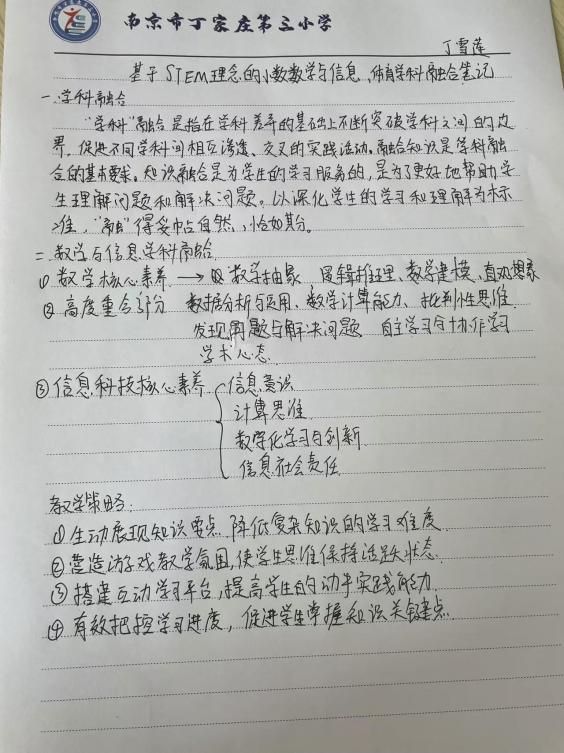 南京市丁家庄第三小学
丁雪莲
基于STEM理念的小数数学与信息、体育学科融合笔记
一.学科融合
"学科"融合是指在学科差异的基础上不断突破学科之间的边
界,促进不同学科间相互渗透、交叉的实践活动。融合知识是学科融
合的基本要求。知识融合是为学生的学习服务的,是为了更好地帮助学
生理解问题和解决问题。以深化学生的学习和理解为标
准,"融"得妥帖自然、恰如其分。
二.数学与信息学科融合
① 数学核心素养 → 数学抽象 逻辑推理、数学建模、直观想象
② 高度重合部分 数据分析与运用、数学计算能力、批判性思维
发现问题与解决问题 自主学习与协作学习
学术心态
③ 信息科技核心素养 信息意识
计算思维
数字化学习与创新
信息社会责任
教学策略:
① 生动展现知识要点,降低复杂知识的学习难度
② 营造游戏教学氛围,使学生思维保持活跃状态.
③ 搭建互动学习平台,提高学生的动手实践能力.
④ 有效把控学习进度,促进学生掌握知识关键点.